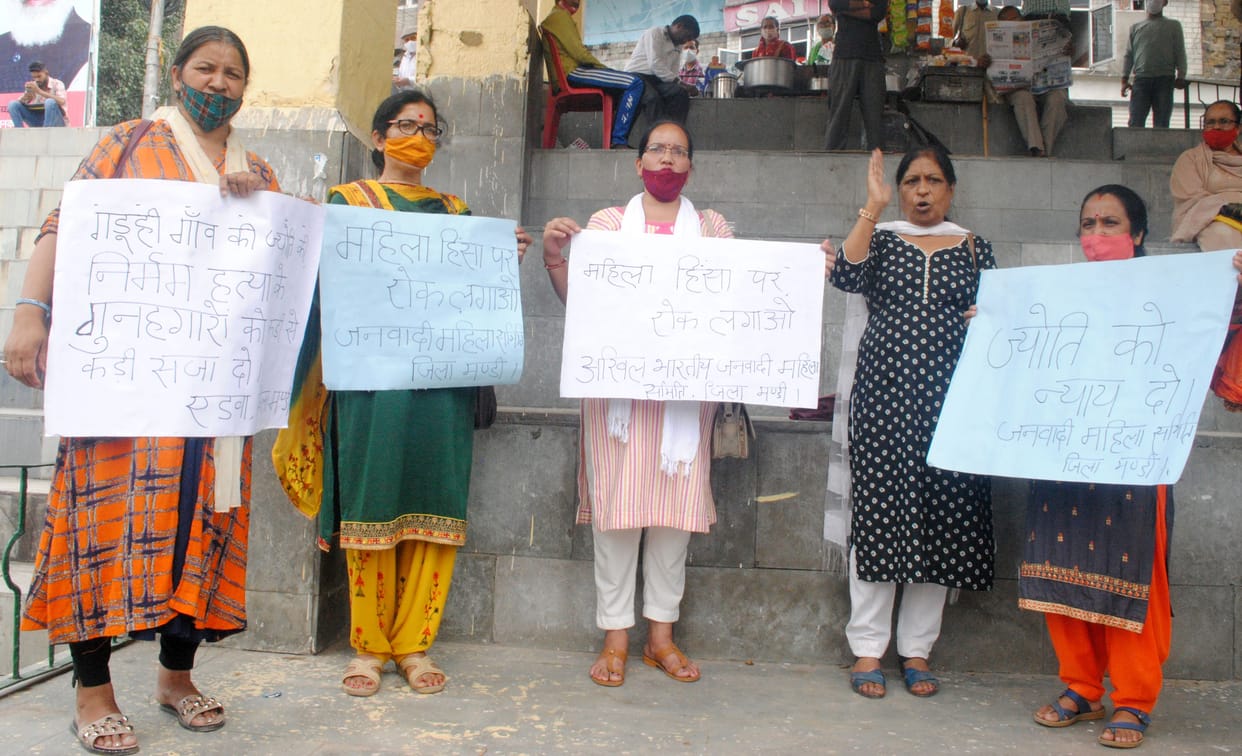 गाँव की ज्योति के
निर्मम हत्या के
गुनहगारों को
कड़ी सजा दो
एडवा
महिला हिंसा पर
रोक लगाओ
जनवादी महिला समिति
जिला मण्डी ।
महिला हिंसा पर
रोक लगाओं
अखिल भारतीय जनवादी महिला
समिति. जिला मण्डी ।
ज्योति को
न्याय दो ।
जनवादी महिला समिति
जिला मण्डी ।
SAI